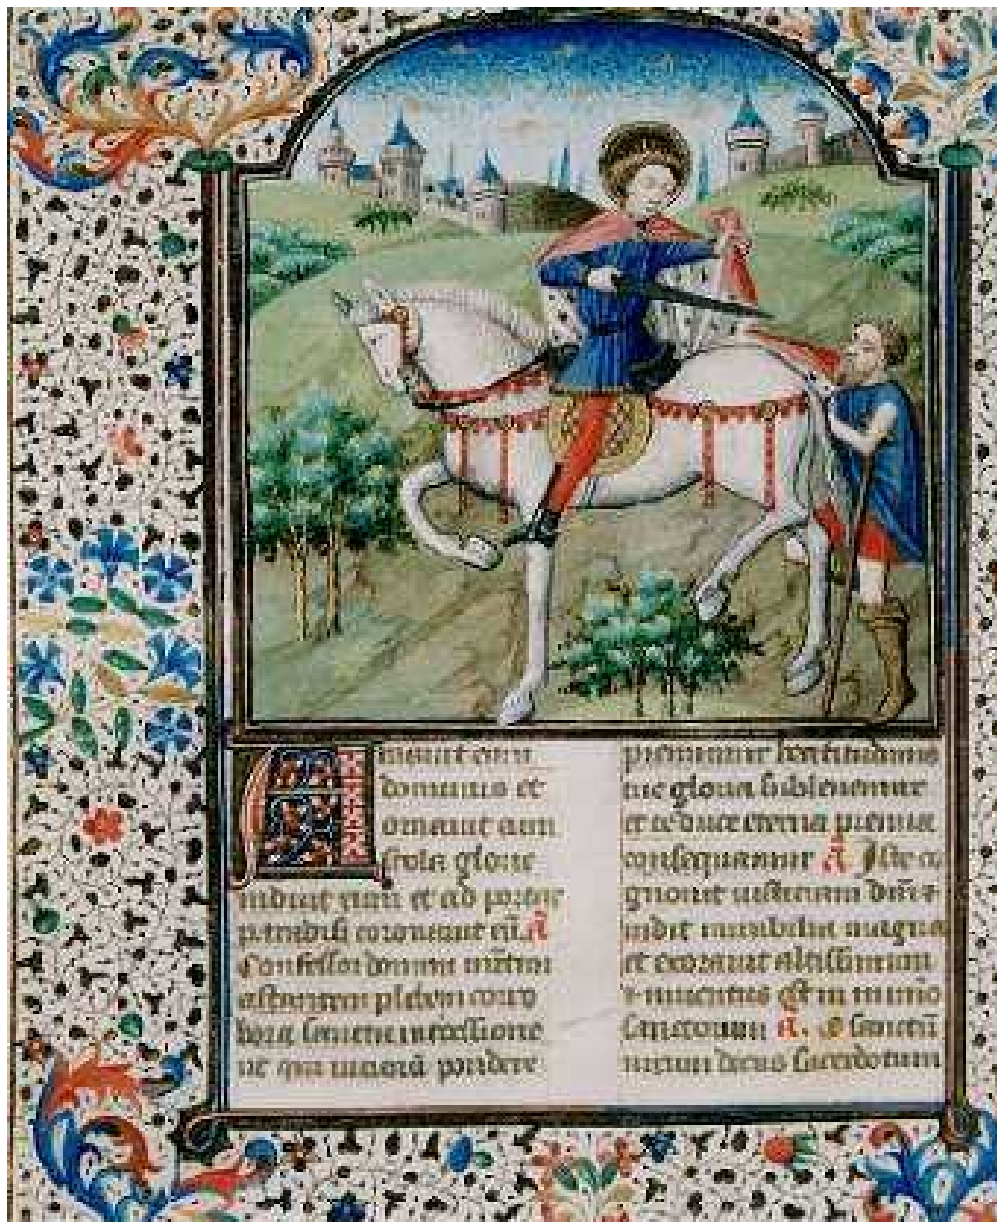 Amauit eum
dominus et
ornauit eum
stola glorie
induit eum et ad portas
paradisi coronauit eū. A
Confessor domini
astantem plebem corro
bora sancta intercessione
ut qui pondere
premimur beatitudinis
tue gloria subleuemur
et te duce eterna premia
consequamur A Iste co
gnouit iusticiam
uidit mirabilia magna
et exorauit altissimum
inuentus est in
sanctorum A. O sanctū
uirum decus sacerdotum